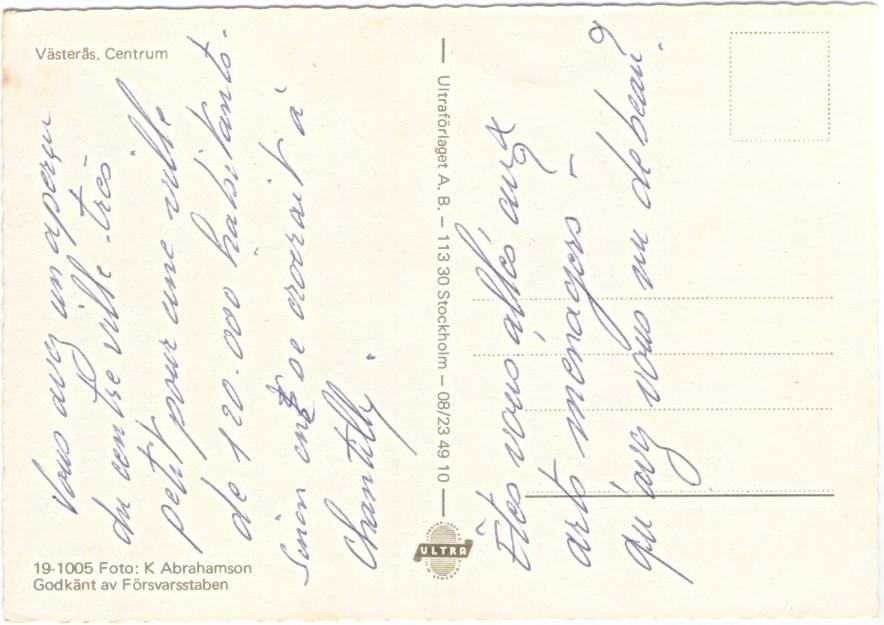 Västerås. Centrum
Vous avez un aperçu
du centre ville très
petit pour une ville
de 120.000 habitants.
Sinon on se croirait à
Chantilly.
Ultraförlaget A. B. – 113 30 Stockholm – 08/23 49 10
ULTRA
Êtes vous allés aux
arts menagers –
qu'avez vous vu de beau?
19-1005 Foto: K Abrahamson
Godkänt av Försvarsstaben